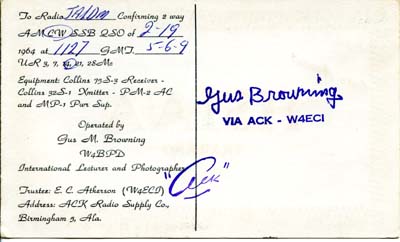 To Radio JA1DM Confirming 2 way
AM CW SSB QSO of 2-19
1964 at 1127 GMT. 5-6-9
UR 3, 7, 14, 21, 28Mc
Equipment: Collins 75S-3 Receiver -
Collins 32S-1 Xmitter - PM-2 AC
and MP-1 Pwr Sup.
Operated by
Gus M. Browning
W4BPD
International Lecturer and Photographer
Trustee: E. C. Atkerson (W4ECI)
Address: ACK Radio Supply Co.,
Birmingham 5, Ala.
Gus Browning
VIA ACK - W4ECI
"Ack"